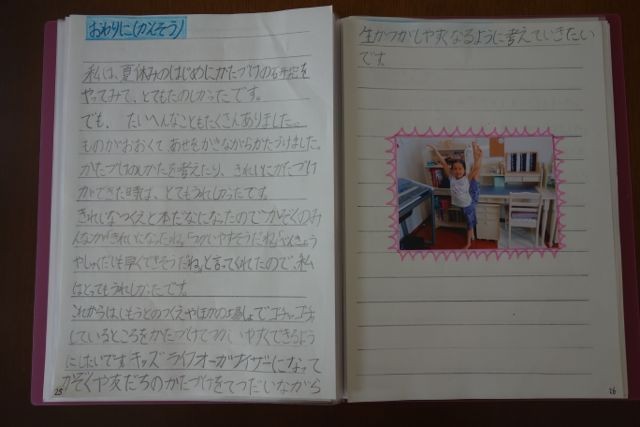 おわりに(かんそう)
私は、夏休みのはじめにかたづけの
やってみて、とてもたのしかったです。
でも、たいへんなこともたくさんありました。
ものがおおくてあせをかきながらかたづけました。
かたづけのしかたを考えたり、きれいにかたづけ
ができた時は、とてもうれしかったです。
きれいなつくえと本だなになったのでかぞくのみ
んなが「きれいになったね。」「つかいやすそうだね。」「べんきょう
やしゅくだいも早くできそうだね。」と言ってくれたので、私
はとってもうれしかったです。
これからはいもうとのつくえやほかの場しょでゴチャゴチャ
しているところをかたづけてつかいやすくできるよう
にしたいです。キッズライフオーガナイザーになって
かぞくや友だちのかたづけをてつだいながら
25
生かつがしやすくなるように考えていきたい
です。
26